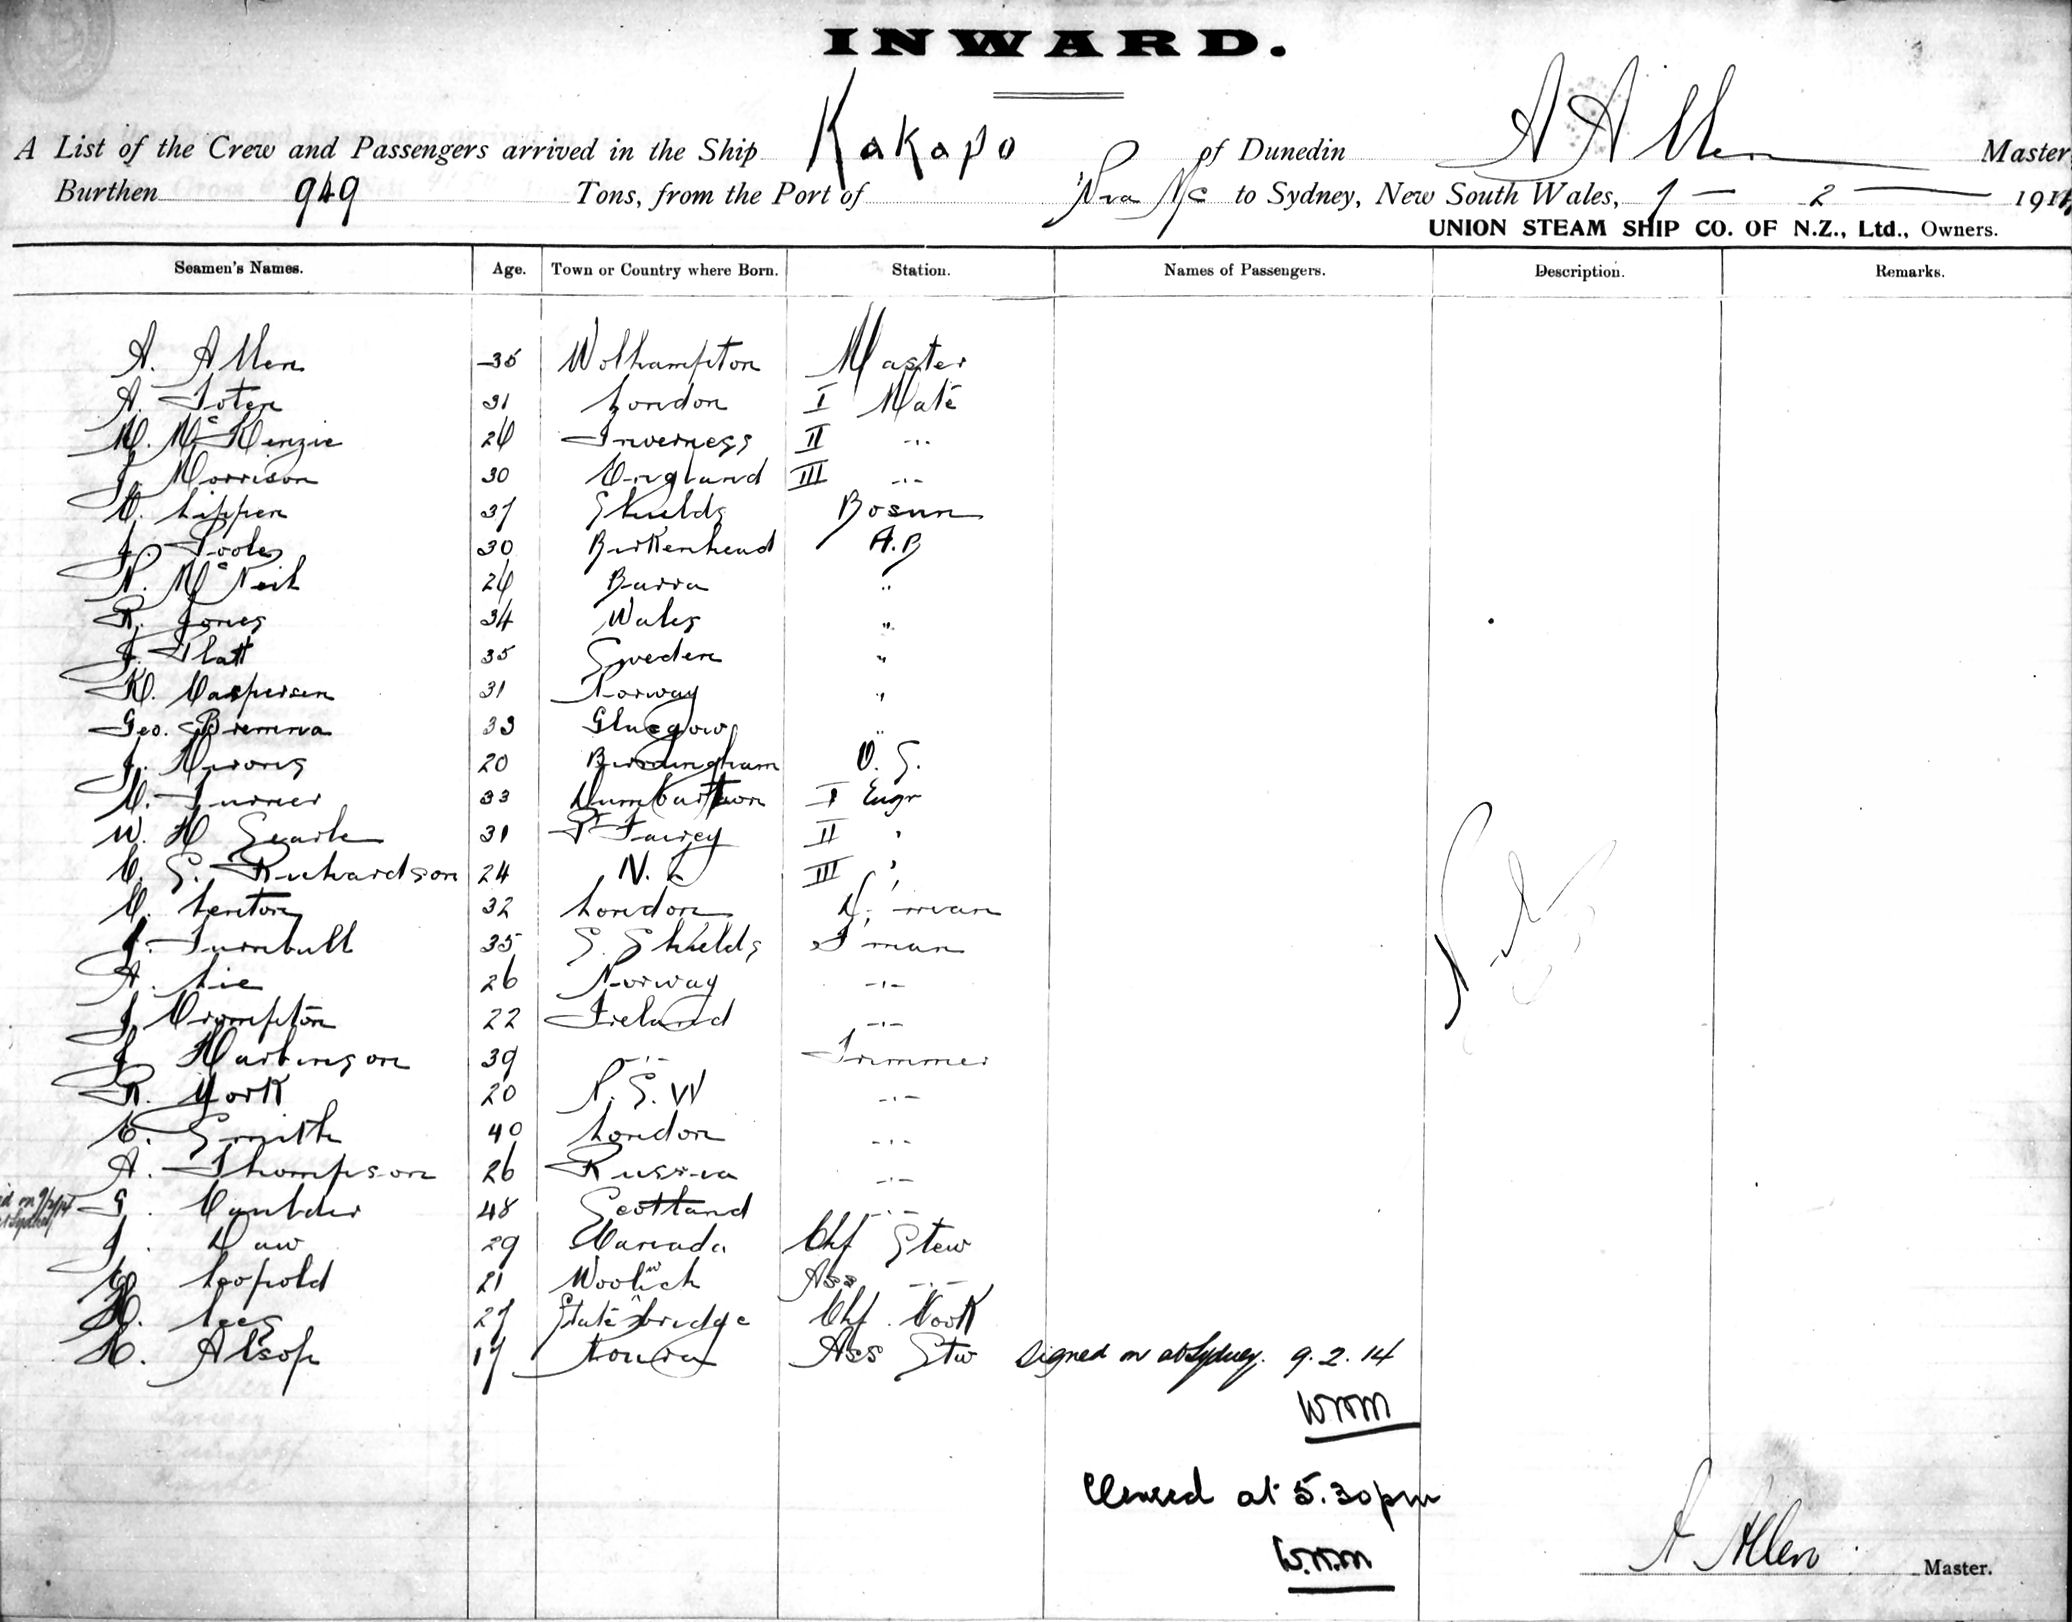 INWARD.
A List of the Crew and Passengers arrived in the Ship Kakapo of Dunedin A Allen Master
Burthen 949 Tons, from the Port of to Sydney, New South Wales, 2 1914
UNION STEAM SHIP CO. OF N.Z., Ltd., Owners.
Seamen's Names. Age. Town or Country where Born. Station. Names of Passengers. Description. Remarks.
A. Allen 35 Wolhampton Master
A. 31 London I Mate
M. McKenzie 26 Inverness II -..-
J. Morrison 30 England III -..-
C. Lippen 37 Shields Bosun
J. Pooles 30 Birkenhead A.B
N. McNeil 26 Barra "
R. Jones 34 Wales "
J. Platt 35 Sweden "
K. Caspersen 31 Norway "
Geo. Bremna 33 Glasgow "
J. 20 Birmingham O. S.
Turner 33 Dumbartton I Engr
W. H Searle 31 Pt Fairey II "
C. S. Richardson 24 N. Z III "
C. Lenton 32 London D, man
J. Turnbull 35 S. Shields F man
A. Lie 26 Norway -..-
J Crompton 22 Ireland -..-
J Harbinson 39 -..- Trimmer
R. York 20 N. S. W -..-
C. Smith 40 London -..-
A. Thompson 26 Russia -..-
G. 48 Scotland -..-
J. Daw 29 Canada Chf Stew
Leopold 21 Woolwich Ass -..-
H. Lees 27 Chf. Cook
Alsop 17 Ass Stw Signed on at Sydney. 9.2.14
WMM
Cleared at 5.30pm
W.M.M
A Allen Master.